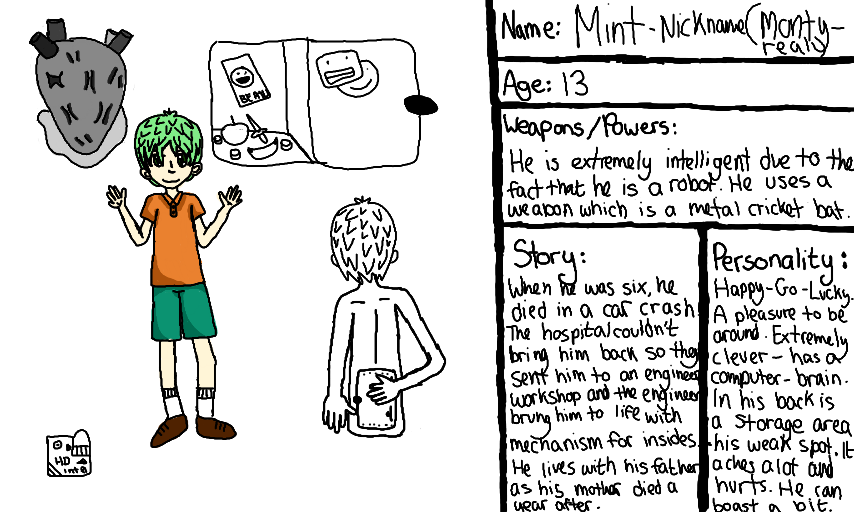 Name: Mint - Nickname (Monty-
realy
Age: 13
Weapons/Powers:
He is extremely intelligent due to the
fact that he is a robot. He uses a
weapon which is a metal cricket bat.
Story:
When he was six, he
died in a car crash
The hospital couldn't
bring him back so they
sent him to an engineer
workshop and the engineer
brung him to life with
mechanism for insides.
He lives with his father
as his mother died a
year after.
Personality:
Happy-Go-Lucky.
A pleasure to be
around. Extremely
clever - has a
computer-brain.
In his back is
a storage area
his weak spot. It
aches alot and
hurts. He can
boast a bit.
HD